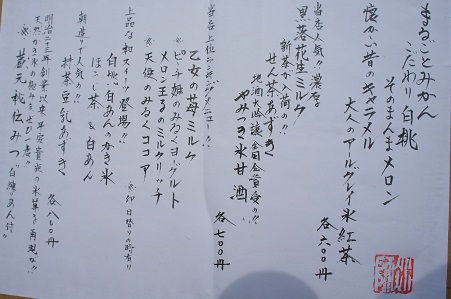 まるごとみかん
こだわり白桃
そのまんまメロン
懐かしい昔のキャラメル
大人のアールグレイ氷紅茶
各六〇〇円
当店人気!!濃厚。
黒落花生ミルク
新茶が入荷の!!
せん茶あずき
地酒大吟醸全国金賞受の!!
やみつき氷甘酒
各七〇〇円
当店上位ランキングメニューの!!
乙女の苺ミルク
ピーチ姫のみるくヨーグルト
メロン王子のミルクリッチ
※天使のみるくココア
上品な和スイーツ登場!!
※印日替りの時有り
白桃と白あんのかき氷
ほうじ茶&白あん
朝造りで人気の!!
抹茶豆乳あずき
各八〇〇円
明治二十三年創業以来、平安貴族の氷菓子を再現か!!
天然かき氷の極みをぜひご恵
※蔵元秘伝みつ"白練りあん付"